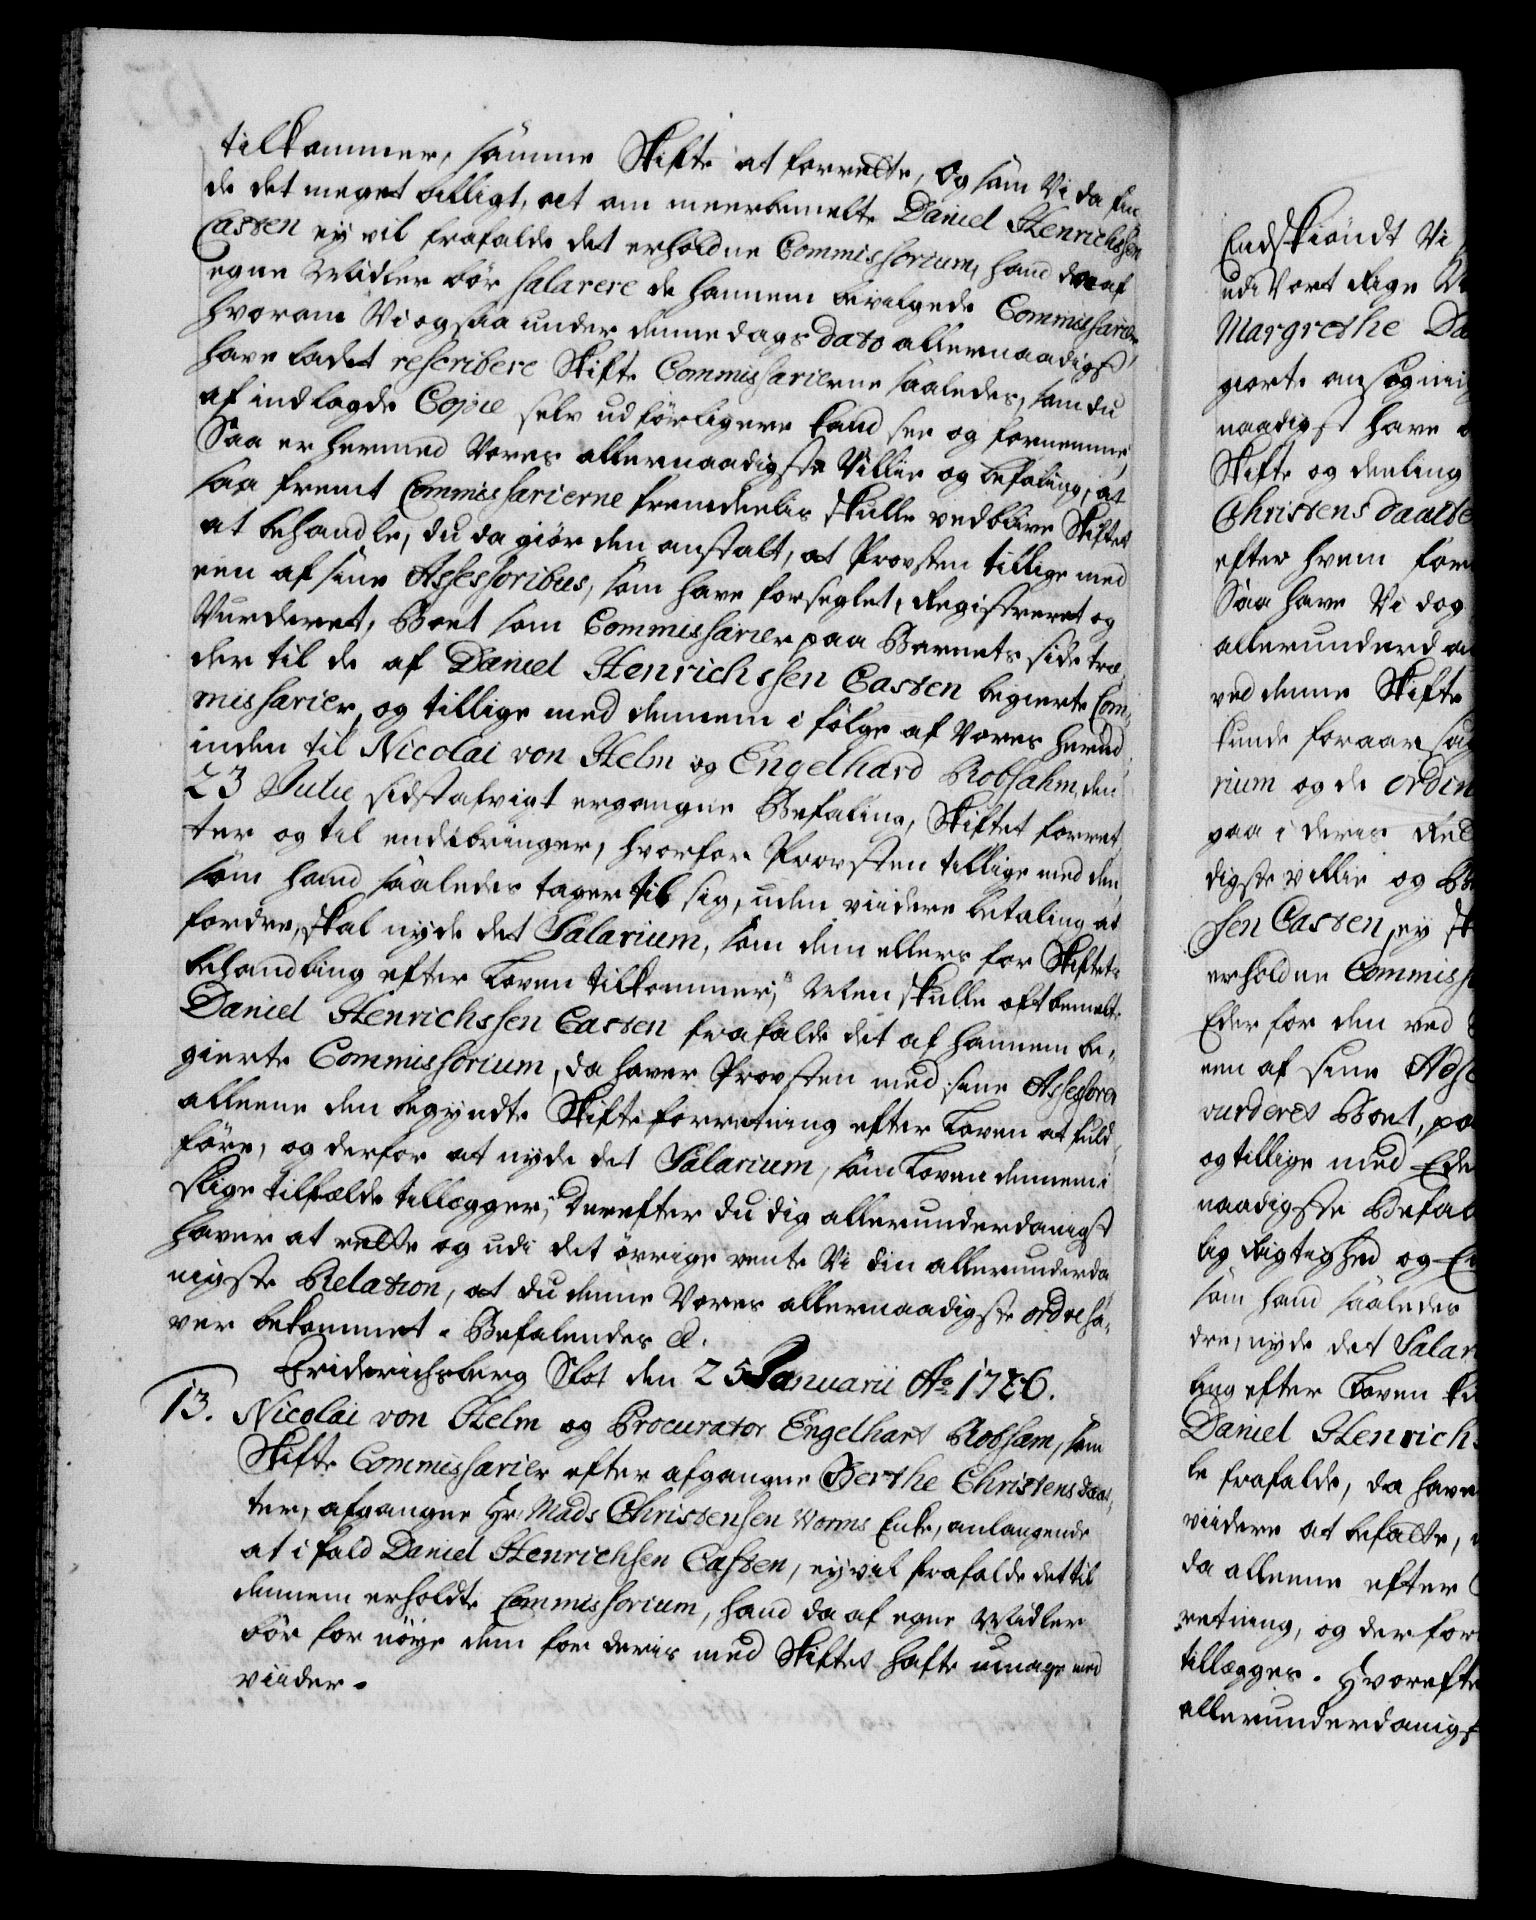 tilkommer, samme Skifte at forrette, Og som Vi da fin
de det meget billigt, at om meerbemelte Daniel Henrichssen
Casten ey vil frafalde det erholdne Commissorium, hand da af
egne Midler bör salarere de hannem bevilgede Commissarier
hvorom Vi ogsaa under denne dags dato allernaadigst
have ladet rescribere Skifte Commissarierne saaledes, som du
af indlagde Copie selv udförligere kand see og fornemme,
Saa er hermed Vores allernaadigste Villie og befaling, at
saa fremt Commissarierne fremdeelis skulle vedblive Skiftet
at behandle, du da giör den anstalt, at Provsten tillige med
een af sine Assessoribus, som have forseglet, Registreret og
Vurderet, Boet som Commissarier paa Barnets side træ
der til de af Daniel Henrichssen Casten begierte Com,
missarier, og tillige med dennem i fölge af Vores herud
inden til Nicolai von Helm og Engelhard Robsahm, den
23 Julii sidstafvigt ergangne Befaling, Skiftet forret
ter og til endebringer, hvorfor Provsten tillige med den,
som hand saaledes tager til sig, uden viidere betaling at
fordre, skal nyde det Salarium, som dem ellers for Skiftets
behandling efter Loven tilkommer; Men skulle oftbemelte
Daniel Henrichssen Casten frafalde det af hannem be,
gierte Commissorium, da haver Provsten med sine Assessorer
alleene den begyndte Skifte forretning efter Loven at fuld
före, og derfor at nyde det Salarium, som Loven dennem i
slige tilfælde tillegger; Derefter du dig allerunderdanigst
haver at rette og udi det övrige vente Vi din allerunderda
nigste Relation, at du denne Vores allernaadigste ordre ha,
ver bekommet. Befalendes &.
Friderichsberg Slot den 25 Januarii Ao 1726.
13. Nicolai von Helm og Procurator Engelhart Robsam, som
Skifte Commissarier efter afgangne Berthe Christensdaat,
ter, afgangne Hr. Mads Christensen Worms Enke, anlangende
at i fald Daniel Henrichsen Casten, ey vil frafalde det til
dennem erholdte Commissorium, hand da af egne Midler
bör for nöye dem for deris med Skiftet hafte umage med
viider.
Endskiöndt Vi
udi Vort Rige
Margrethe
giorte ansögning
naadigst have
Skifte og deeling
Christensdaatter
efter hvem for
Saa have Vi dog
allerunderda
ved denne Skifte
kunde foraarsag
rium og de ordin
paa i deris Red
digste villie og Be
sen Casten, ey sk
erholdne Commiss
Eder for den ved
een af sine Asse
vurderet Boet, pa
og tillige med Ede
naadigste Befal
lig Rigtighed og
som hand saaledes
dre, nyde det Salar
ling efter Loven
Daniel Henrichs
le frafalde, da have
viidere at befatte,
da alleene efter
retning, og derfor
tillægges. Hvorefter
allerunderdanigst